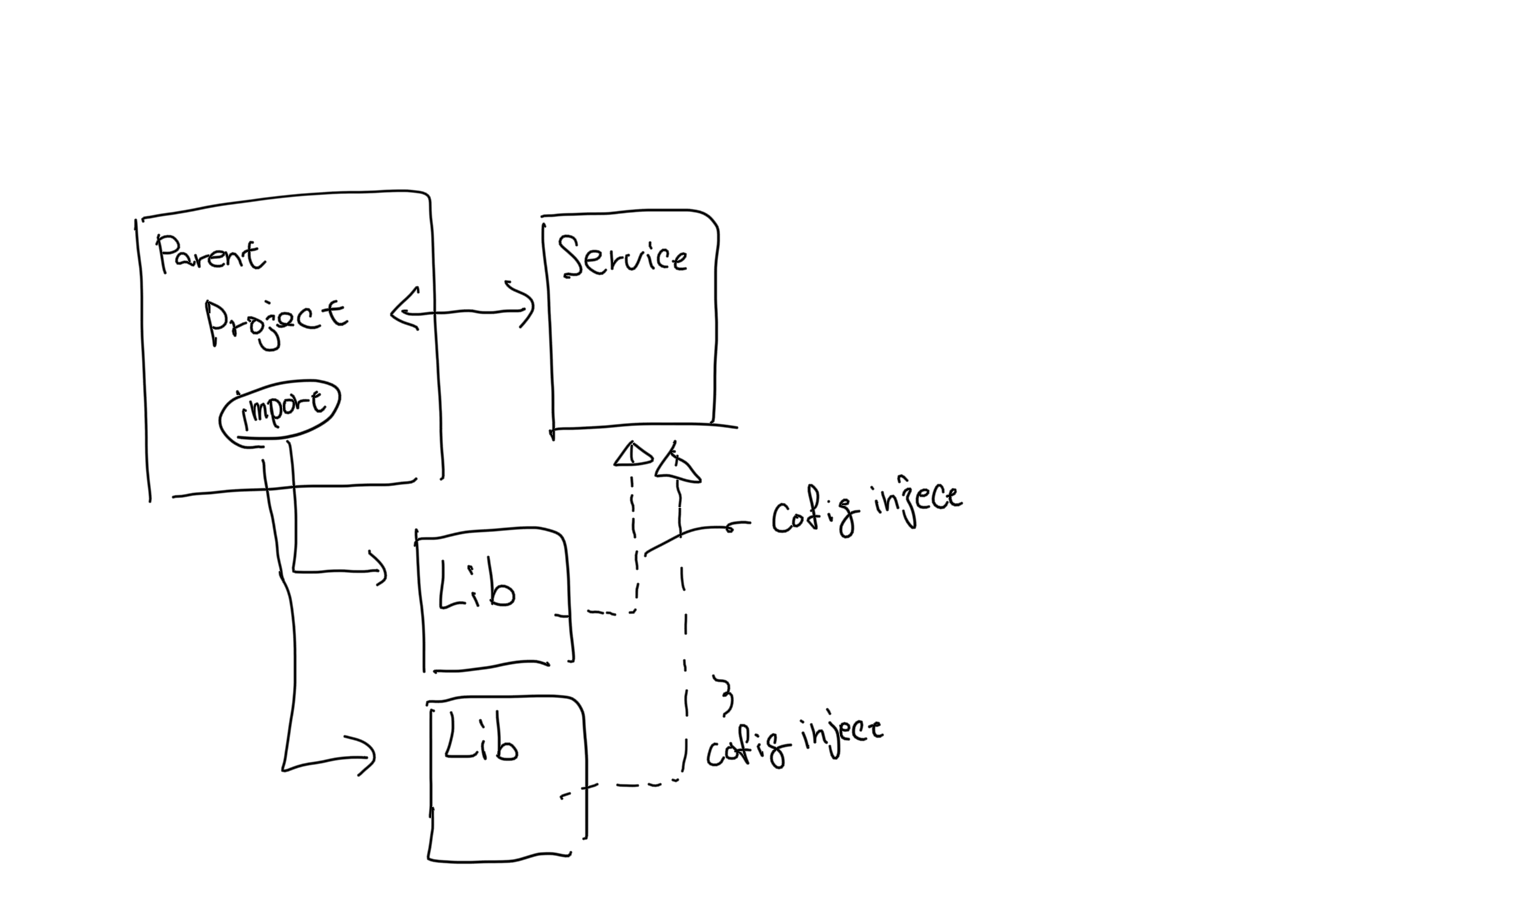 Parent
Project
import
Service
Lib
Cofig inject
Lib
cofig inject